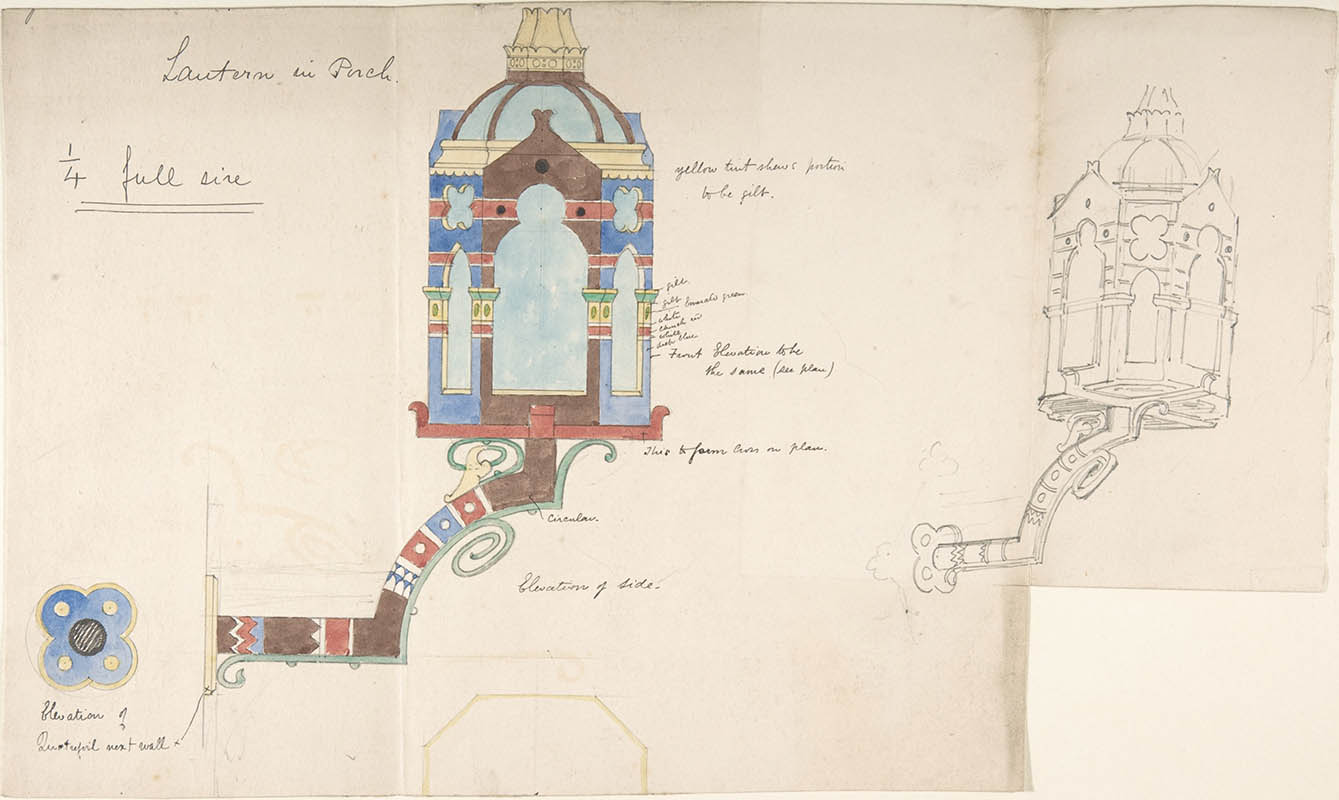 Lantern in Porch.
1/4 full size
yellow tint shews portion
to be gilt.
gilt.
gilt emerald green
white
white
dark blue
Front Elevation to be
the same (see plan)
This to form Cross on plan.
Circular.
Elevation of side.
Elevation of
Quatrefoil next wall x